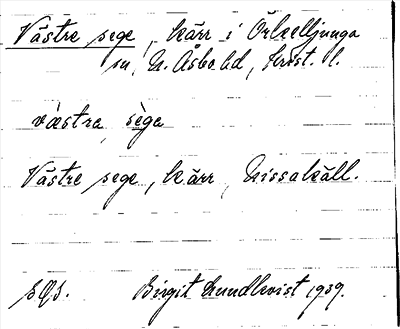 Västre sege, kärr i Örkelljunga
sn, N. Åsbo hd, Krist. l.
västra sèga
Västre sege, kärr, Kissakäll.
sqs. Birgit Lundkvist 1939.